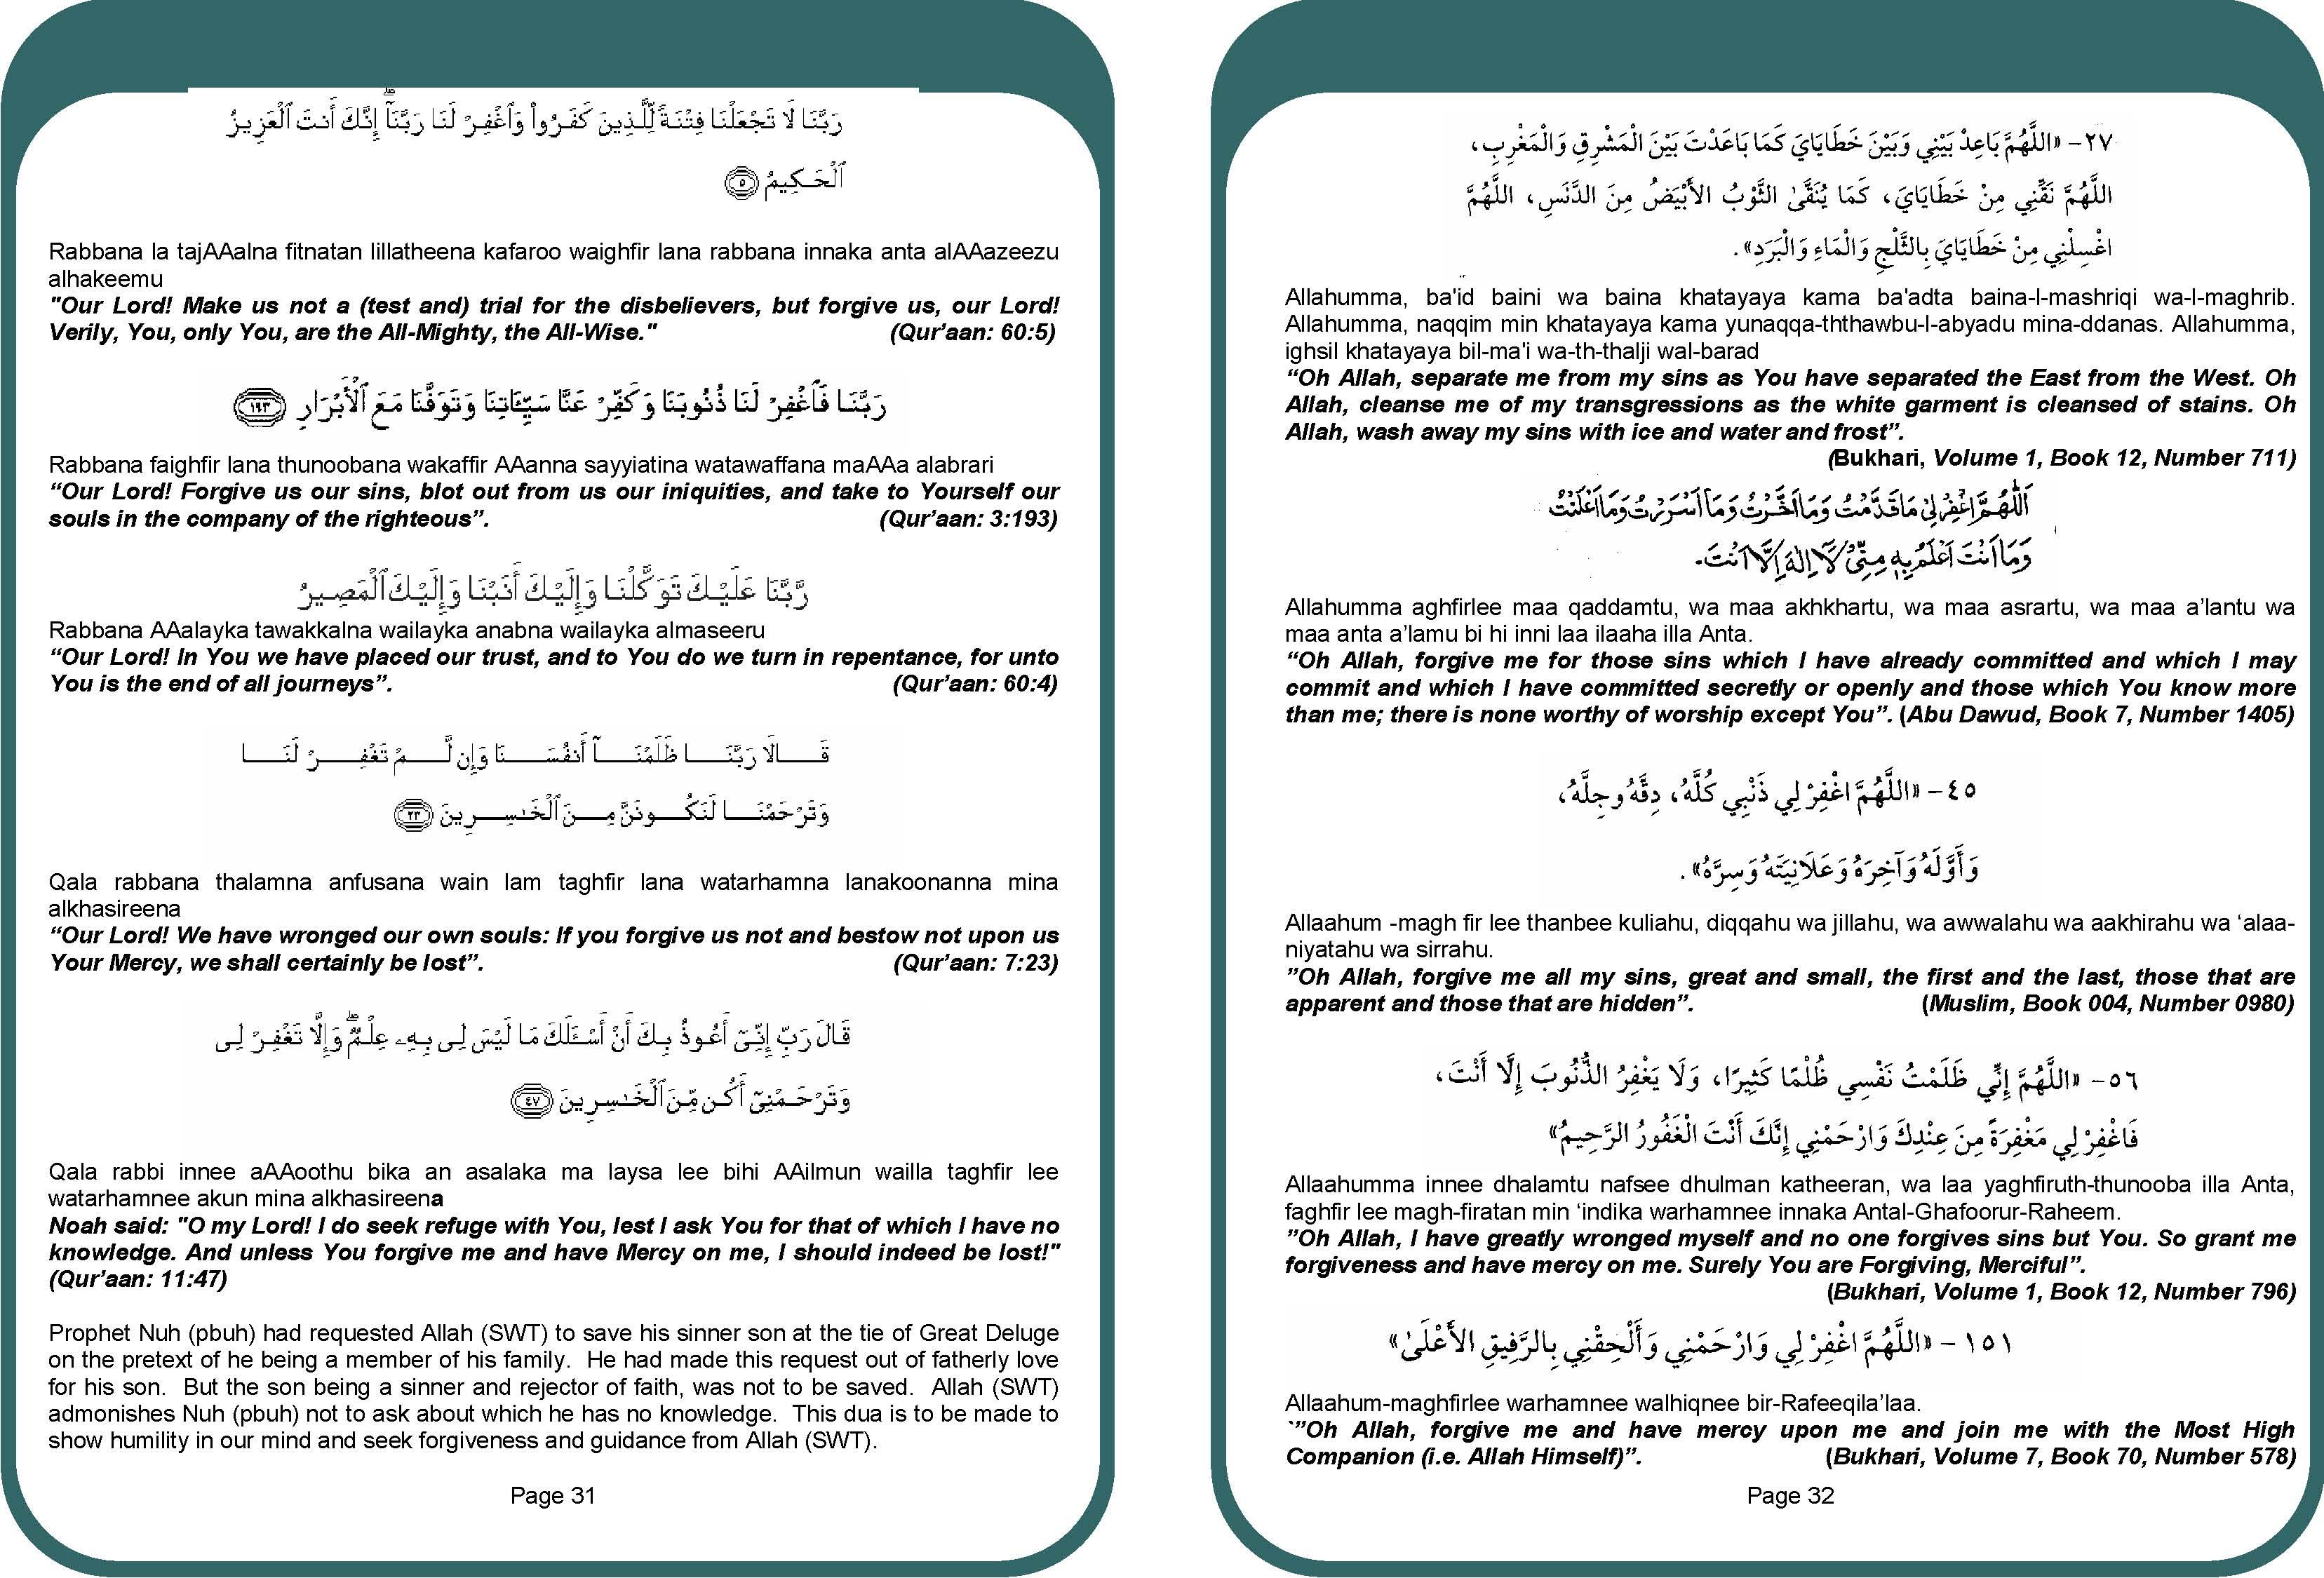 رَبَّنَا لَا تَجْعَلْنَا فِتْنَةً لِّلَّذِينَ كَفَرُوا۟ وَٱغْفِرْ لَنَا رَبَّنَآ ۖ إِنَّكَ أَنتَ ٱلْعَزِيزُ
ٱلْحَكِيمُ ٥
Rabbana la tajAAalna fitnatan lillatheena kafaroo waighfir lana rabbana innaka anta alAAazeezu
alhakeemu
"Our Lord! Make us not a (test and) trial for the disbelievers, but forgive us, our Lord!
Verily, You, only You, are the All-Mighty, the All-Wise." (Qur'aan: 60:5)
رَبَّنَا فَٱغْفِرْ لَنَا ذُنُوبَنَا وَكَفِّرْ عَنَّا سَيِّـَٔاتِنَا وَتَوَفَّنَا مَعَ ٱلْأَبْرَارِ ١٩٣
Rabbana faighfir lana thunoobana wakaffir AAanna sayyiatina watawaffana maAAa alabrari
“Our Lord! Forgive us our sins, blot out from us our iniquities, and take to Yourself our
souls in the company of the righteous”. (Qur’aan: 3:193)
رَّبَّنَا عَلَيْكَ تَوَكَّلْنَا وَإِلَيْكَ أَنَبْنَا وَإِلَيْكَ ٱلْمَصِيرُ
Rabbana AAalayka tawakkalna wailayka anabna wailayka almaseeru
“Our Lord! In You we have placed our trust, and to You do we turn in repentance, for unto
You is the end of all journeys”. (Qur’aan: 60:4)
قَالَا رَبَّنَا ظَلَمْنَآ أَنفُسَنَا وَإِن لَّمْ تَغْفِرْ لَنَا
وَتَرْحَمْنَا لَنَكُونَنَّ مِنَ ٱلْخَـٰسِرِينَ ٢٣
Qala rabbana thalamna anfusana wain lam taghfir lana watarhamna lanakoonanna mina
alkhasireena
“Our Lord! We have wronged our own souls: If you forgive us not and bestow not upon us
Your Mercy, we shall certainly be lost”. (Qur’aan: 7:23)
قَالَ رَبِّ إِنِّىٓ أَعُوذُ بِكَ أَنْ أَسْـَٔلَكَ مَا لَيْسَ لِى بِهِۦ عِلْمٌ ۖ وَإِلَّا تَغْفِرْ لِى
وَتَرْحَمْنِىٓ أَكُن مِّنَ ٱلْخَـٰسِرِينَ ٤٧
Qala rabbi innee aAAoothu bika an asalaka ma laysa lee bihi AAilmun wailla taghfir lee
watarhamnee akun mina alkhasireena
Noah said: "O my Lord! I do seek refuge with You, lest I ask You for that of which I have no
knowledge. And unless You forgive me and have Mercy on me, I should indeed be lost!"
(Qur’aan: 11:47)
Prophet Nuh (pbuh) had requested Allah (SWT) to save his sinner son at the tie of Great Deluge
on the pretext of he being a member of his family. He had made this request out of fatherly love
for his son. But the son being a sinner and rejector of faith, was not to be saved. Allah (SWT)
admonishes Nuh (pbuh) not to ask about which he has no knowledge. This dua is to be made to
show humility in our mind and seek forgiveness and guidance from Allah (SWT).
Page 31
٢٧- «اللَّهُمَّ بَاعِدْ بَيْنِي وَبَيْنَ خَطَايَايَ كَمَا بَاعَدْتَ بَيْنَ الْمَشْرِقِ وَالْمَغْرِبِ،
اللَّهُمَّ نَقِّنِي مِنْ خَطَايَايَ، كَمَا يُنَقَّىٰ الثَّوْبُ الأَبْيَضُ مِنَ الدَّنَسِ، اللَّهُمَّ
اغْسِلْنِي مِنْ خَطَايَايَ بِالثَّلْجِ وَالْمَاءِ وَالْبَرَدِ».
Allahumma, ba'id baini wa baina khatayaya kama ba'adta baina-l-mashriqi wa-l-maghrib.
Allahumma, naqqim min khatayaya kama yunaqqa-ththawbu-l-abyadu mina-ddanas. Allahumma,
ighsil khatayaya bil-ma'i wa-th-thalji wal-barad
“Oh Allah, separate me from my sins as You have separated the East from the West. Oh
Allah, cleanse me of my transgressions as the white garment is cleansed of stains. Oh
Allah, wash away my sins with ice and water and frost”.
(Bukhari, Volume 1, Book 12, Number 711)
اَللّٰهُمَّ اغْفِرْلِىْ مَا قَدَّمْتُ وَمَا اَخَّرْتُ وَمَا اَسْرَرْتُ وَمَا اَعْلَنْتُ
وَمَا اَنْتَ اَعْلَمُ بِهٖ مِنِّىْ لَا اِلٰهَ اِلَّا اَنْتَ.
Allahumma aghfirlee maa qaddamtu, wa maa akhkhartu, wa maa asrartu, wa maa a’lantu wa
maa anta a’lamu bi hi inni laa ilaaha illa Anta.
“Oh Allah, forgive me for those sins which I have already committed and which I may
commit and which I have committed secretly or openly and those which You know more
than me; there is none worthy of worship except You”. (Abu Dawud, Book 7, Number 1405)
٤٥- «اللَّهُمَّ اغْفِرْ لِي ذَنْبِي كُلَّهُ، دِقَّهُ وجِلَّهُ،
وَأَوَّلَهُ وَآخِرَهُ وَعَلَانِيَتَهُ وَسِرَّهُ».
Allaahum -magh fir lee thanbee kuliahu, diqqahu wa jillahu, wa awwalahu wa aakhirahu wa ‘alaa-
niyatahu wa sirrahu.
”Oh Allah, forgive me all my sins, great and small, the first and the last, those that are
apparent and those that are hidden”. (Muslim, Book 004, Number 0980)
٥٦- «اللَّهُمَّ إِنِّي ظَلَمْتُ نَفْسِي ظُلْمًا كَثِيرًا، وَلَا يَغْفِرُ الذُّنُوبَ إِلَّا أَنْتَ،
فَاغْفِرْ لِي مَغْفِرَةً مِنَ عِنْدِكَ وَارْحَمْنِي إِنَّكَ أَنْتَ الْغَفُورُ الرَّحِيمُ»
Allaahumma innee dhalamtu nafsee dhulman katheeran, wa laa yaghfiruth-thunooba illa Anta,
faghfir lee magh-firatan min ‘indika warhamnee innaka Antal-Ghafoorur-Raheem.
”Oh Allah, I have greatly wronged myself and no one forgives sins but You. So grant me
forgiveness and have mercy on me. Surely You are Forgiving, Merciful”.
(Bukhari, Volume 1, Book 12, Number 796)
١٥١ - «اللَّهُمَّ اغْفِرْ لِي وَارْحَمْنِي وَأَلْحِقْنِي بِالرَّفِيقِ الأَعْلَىٰ»
Allaahum-maghfirlee warhamnee walhiqnee bir-Rafeeqila’laa.
`”Oh Allah, forgive me and have mercy upon me and join me with the Most High
Companion (i.e. Allah Himself)”. (Bukhari, Volume 7, Book 70, Number 578)
Page 32